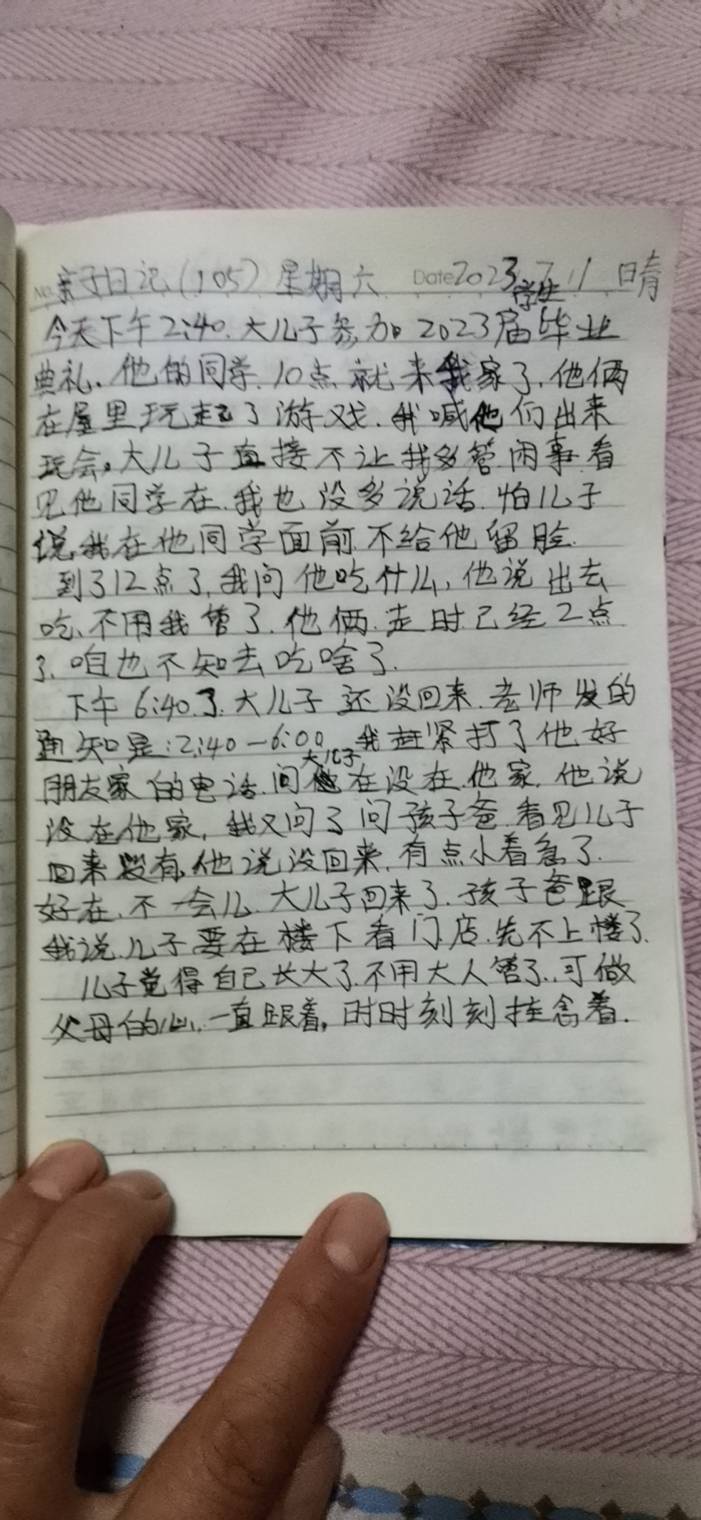 No. 亲子日记(105) 星期六 Date 2023.7.1 晴
今天下午2:40.大儿子参加2023届学生毕业
典礼.他的同学.10点就来我家了.他俩
在屋里玩起了游戏.我喊他们出来
玩会。大儿子直接不让我多管闲事.看
见他同学在.我也没多说话.怕儿子
说我在他同学面前.不给他留脸.
到了12点了,我问他吃什么,他说出去
吃,不用我管了.他俩.走时已经2点
了.咱也不知去吃啥了.
下午6:40了.大儿子还没回来.老师发的
通知是:2:40—6:00.我赶紧打了他好
朋友家的电话.问大儿子在没在他家.他说
没在他家,我又问了问孩子爸.看见儿子
回来没有,他说没回来.有点小着急了.
好在.不一会儿.大儿子回来了.孩子爸跟
我说.儿子要在楼下看门店.先不上楼了.
儿子觉得自己长大了.不用大人管了.可做
父母的心.一直跟着,时时刻刻挂念着.